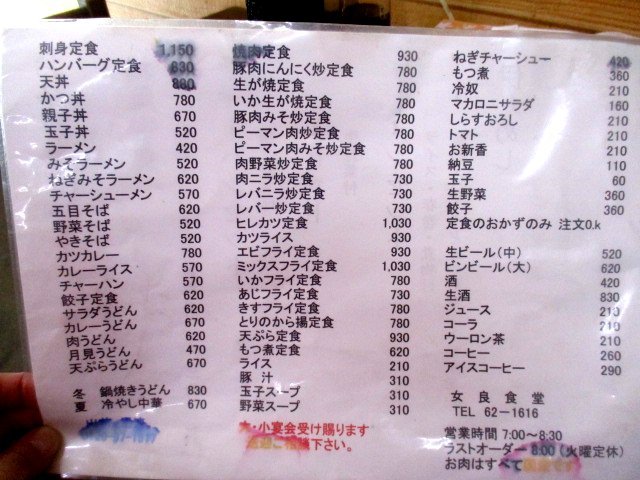 刺身定食 1,150
ハンバーグ定食
天丼
かつ丼 780
親子丼 670
玉子丼 520
ラーメン 420
みそラーメン 520
ねぎみそラーメン 620
チャーシューメン 570
五目そば 620
野菜そば 520
やきそば 520
カツカレー 780
カレーライス 570
チャーハン 570
餃子定食 620
サラダうどん 620
カレーうどん 670
肉うどん 620
月見うどん 470
天ぷらうどん 670
冬 鍋焼きうどん 830
夏 冷やし中華 670
焼肉定食 930
豚肉にんにく炒定食 780
生が焼定食 780
いか生が焼定食 780
豚肉みそ炒定食 780
ピーマン肉炒定食 780
ピーマン肉みそ炒定食 780
肉野菜炒定食 780
肉ニラ炒定食 730
レバニラ炒定食 730
レバー炒定食 730
ヒレカツ定食 1,030
カツライス 930
エビフライ定食 930
ミックスフライ定食 1,030
いかフライ定食 780
あじフライ定食 730
きすフライ定食 780
とりのから揚定食 780
天ぷら定食 930
もつ煮定食 620
ライス 210
豚 汁 310
玉子スープ 310
野菜スープ 310
・小宴会受け賜ります
下さい。
ねぎチャーシュー 420
もつ煮 360
冷奴 210
マカロニサラダ 160
しらすおろし 210
トマト 210
お新香 210
納豆 110
玉子 60
生野菜 360
餃子 360
定食のおかずのみ 注文O.k
生ビール(中) 520
ビンビール(大) 620
酒 420
生酒 830
ジュース 210
コーラ 210
ウーロン茶 210
コーヒー 260
アイスコーヒー 290
女 良 食 堂
TEL 62-1616
営業時間 7:00~8:30
ラストオーダー 8:00 (火曜定休)
お肉はすべて